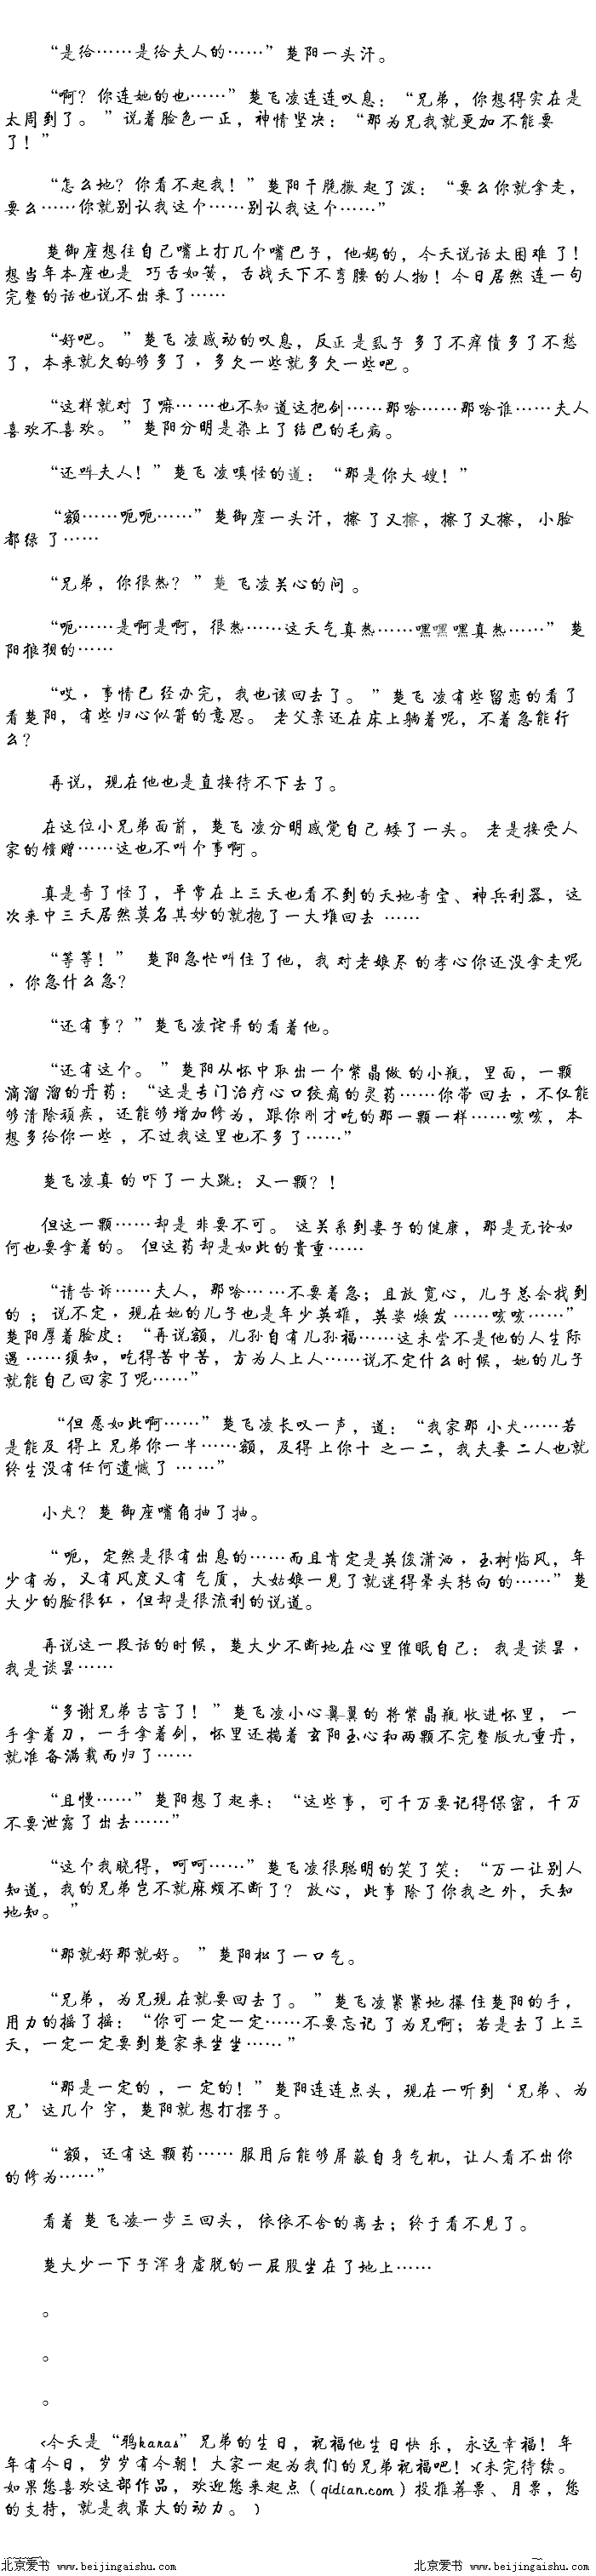 “是给……是给夫人的……”楚阳一头汗。
“啊？你连她的也……”楚飞凌连连叹息：“兄弟，你想得实在是
太周到了。”说着脸色一正，神情坚决：“那为兄我就更加不能要
了！”
“怎么地？你看不起我！”楚阳干脆撒起了泼：“要么你就拿走，
要么……你就别认我这个……别认我这个……”
楚御座想往自己嘴上打几个嘴巴子，他妈的，今天说话太困难了！
想当年本座也是 巧舌如簧，舌战天下不弯腰的人物！今日居然连一句
完整的话也说不出来了……
“好吧。”楚飞凌感动的叹息，反正是虱子多了不痒债多了不愁
了，本来就欠的够多了，多欠一些就多欠一些吧。
“这样就对了嘛……也不知道这把剑……那啥……那啥谁……夫人
喜欢不喜欢。”楚阳分明是染上了结巴的毛病。
“还叫夫人！”楚飞凌嗔怪的道：“那是你大嫂！”
“额……呃呃……”楚御座一头汗，擦了又擦，擦了又擦，小脸
都绿了……
“兄弟，你很热？”楚飞凌关心的问。
“呃……是啊是啊，很热……这天气真热……嘿嘿嘿真热……”楚
阳狼狈的……
“哎，事情已经办完，我也该回去了。”楚飞凌有些留恋的看了
看楚阳，有些归心似箭的意思。老父亲还在床上躺着呢，不着急能行
么？
再说，现在他也是直接待不下去了。
在这位小兄弟面前，楚飞凌分明感觉自己矮了一头。老是接受人
家的馈赠……这也不叫个事啊。
真是奇了怪了，平常在上三天也看不到的天地奇宝、神兵利器，这
次来中三天居然莫名其妙的就抱了一大堆回去……
“等等！” 楚阳急忙叫住了他，我对老娘尽的孝心你还没拿走呢
，你急什么急？
“还有事？”楚飞凌诧异的看着他。
“还有这个。”楚阳从怀中取出一个紫晶做的小瓶，里面，一颗
滴溜溜的丹药：“这是专门治疗心口绞痛的灵药……你带回去，不仅能
够清除顽疾，还能够增加修为，跟你刚才吃的那一颗一样……咳咳，本
想多给你一些，不过我这里也不多了……”
楚飞凌真的吓了一大跳：又一颗？！
但这一颗……却是非要不可。这关系到妻子的健康，那是无论如
何也要拿着的。但这药却是如此的贵重……
“请告诉……夫人，那啥……不要着急；且放宽心，儿子总会找到
的；说不定，现在她的儿子也是年少英雄，英姿焕发……咳咳……”
楚阳厚着脸皮：“再说额，儿孙自有儿孙福……这未尝不是他的人生际
遇……须知，吃得苦中苦，方为人上人……说不定什么时候，她的儿子
就能自己回家了呢……”
“但愿如此啊……”楚飞凌长叹一声，道：“我家那小犬……若
是能及得上兄弟你一半……额，及得上你十之一二，我夫妻二人也就
终生没有任何遗憾了……”
小犬？楚御座嘴角抽了抽。
“呃，定然是很有出息的……而且肯定是英俊潇洒，玉树临风，年
少有为，又有风度又有气质，大姑娘一见了就迷得晕头转向的……”楚
大少的脸很红，但却是很流利的说道。
再说这一段话的时候，楚大少不断地在心里催眠自己：我是谈昙，
我是谈昙……
“多谢兄弟吉言了！”楚飞凌小心翼翼的将紫晶瓶收进怀里，一
手拿着刀，一手拿着剑，怀里还揣着玄阳玉心和两颗不完整版九重丹，
就准备满载而归了……
“且慢……”楚阳想了起来：“这些事，可千万要记得保密，千万
不要泄露了出去……”
“这个我晓得，呵呵……”楚飞凌很聪明的笑了笑：“万一让别人
知道，我的兄弟岂不就麻烦不断了？放心，此事除了你我之外，天知
地知。”
“那就好那就好。”楚阳松了一口气。
“兄弟，为兄现在就要回去了。”楚飞凌紧紧地握住楚阳的手，
用力的摇了摇：“你可一定一定……不要忘记了为兄啊；若是去了上三
天，一定一定要到楚家来坐坐……”
“那是一定的，一定的！”楚阳连连点头，现在一听到‘兄弟、为
兄’这几个字，楚阳就想打摆子。
“额，还有这颗药……服用后能够屏蔽自身气机，让人看不出你
的修为……”
看着楚飞凌一步三回头，依依不舍的离去；终于看不见了。
楚大少一下子浑身虚脱的一屁股坐在了地上……
。
。
。
<今天是“鸦karas”兄弟的生日，祝福他生日快乐，永远幸福！年
年有今日，岁岁有今朝！大家一起为我们的兄弟祝福吧！>(未完待续。
如果您喜欢这部作品，欢迎您来起点（qidian.com）投推荐票、月票，您
的支持，就是我最大的动力。）
北京爱书 www.beijingaishu.com 北京爱书 www.beijingaishu.com